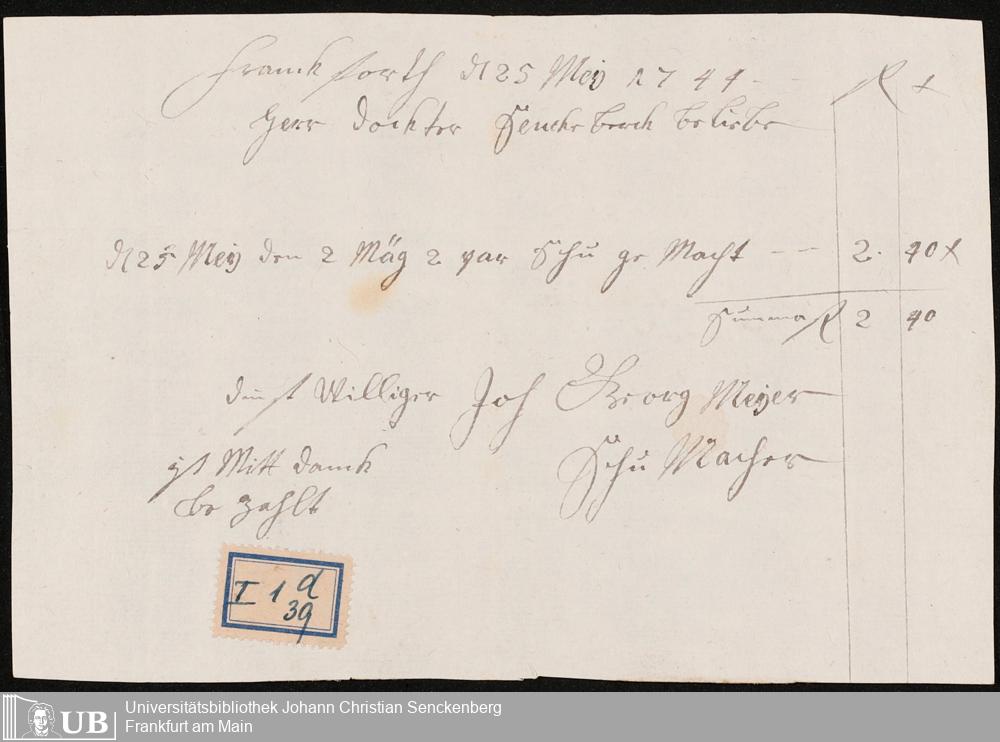 Franck forth d 25 Mey 1744 fl x
Herr dockter Sencke berch beliebe
d 25 Mey den 2 Mäg 2 par Schu ge Macht — — 2. 40 x
Summa fl 2 40
dinst Williger Joh Georg Meyer
Schu Macher
ist Mitt danck
be zahlt
I 1 d
39
UB Universitätsbibliothek Johann Christian Senckenberg
Frankfurt am Main